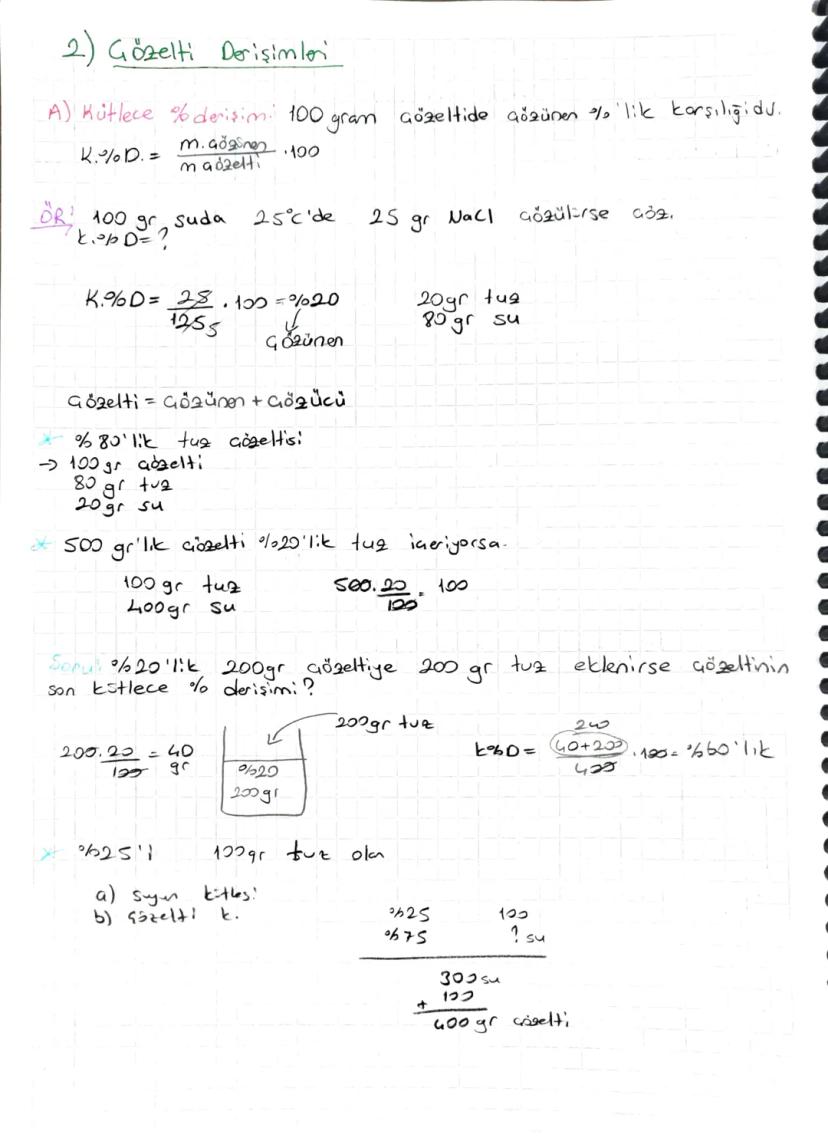 2) Çözelti Derişimleri
A) Kütlece % derişim: 100 gram çözeltide çözünen %'lik karşılığıdır.
K.%D. = m.çözünen / m çözelti .100
ÖR: 100 gr suda 25°C'de 25 gr NaCl çözülürse çöz.
k.%D=?
K.%D = 25/125 5 . 100 = %20
Çözünen
20gr tuz
80 gr su
Çözelti = Çözünen + Çözücü
* %80'lik tuz çözeltisi
→ 100 gr çözelti
80 gr tuz
20gr su
* 500 gr'lık çözelti %20'lik tuz içeriyorsa.
100 gr tuz
400gr su
500.20/100 = 100
Soru: %20'lik 200gr çözeltiye 200 gr tuz eklenirse çözeltinin
son kütlece % derişimi?
200.20/100 = 40 gr
200gr tuz
%20
200gr
240
k%D = 40+200/400 .100 = %60'lık
* %25'i 100gr tuz olan
a) Suyun kütlesi
b) Çözelti k.
%25 100
%75 ? su
300 su
+ 100
400 gr çözelti